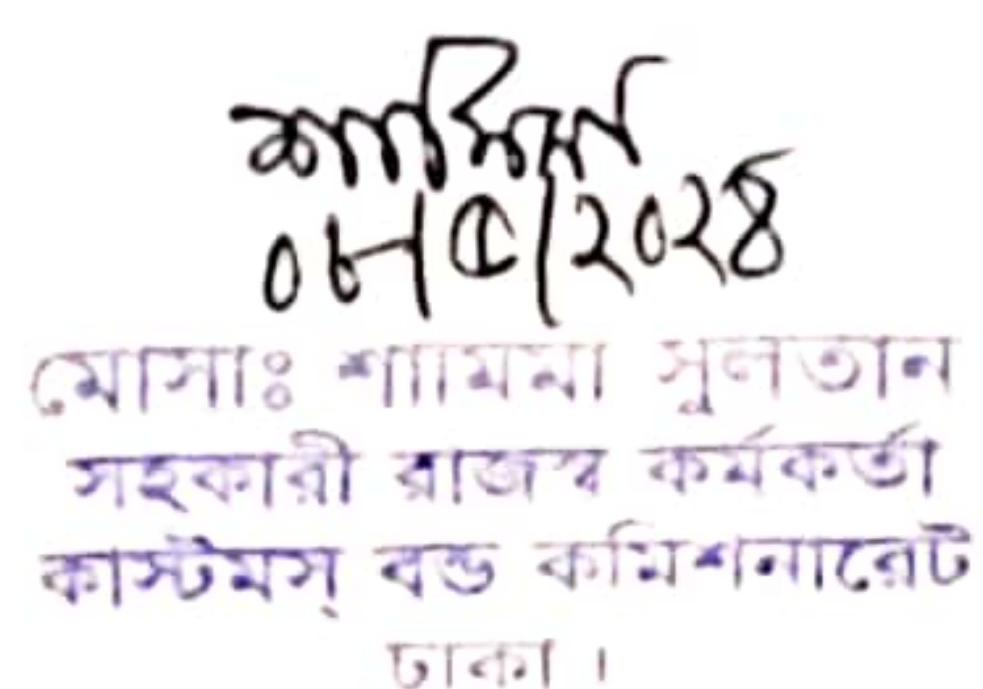 ০৮/৫/২০২৪
মোসাঃ শামিমা সুলতান
সহকারী রাজস্ব কর্মকর্তা
কাস্টমস্ বন্ড কমিশনারেট
ঢাকা।